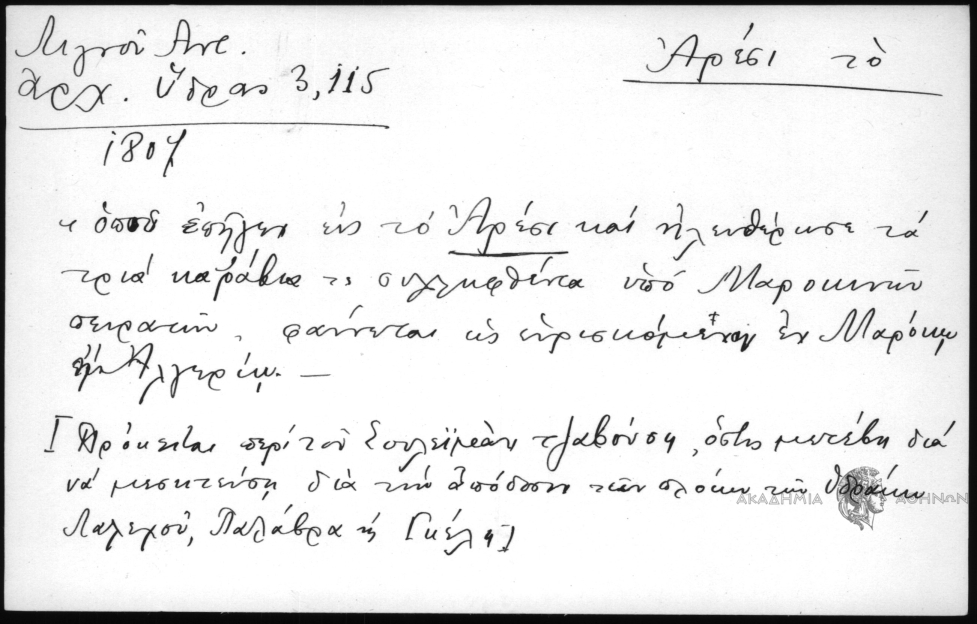 Λιγνοῦ Ἀντ.
ἀρχ. Ὕδρας 3,115
Ἀρέσι τὸ
1807
« ὁποῦ ἐπῆγεν εἰς τὸ Ἀρέσι καὶ ἠλευθέρωσε τὰ
τρία καράβια τὰ συλληφθέντα ὑπὸ Μαροκινῶν
πειρατῶν, φαίνεται ὡς εὑρισκόμενον ἐν Μαρόκῳ
ἢ Ἀλγερίῳ. —
[Πρόκειται περὶ τοῦ Σουλεϊμὰν τζαβούση, ὅστις μετέβη διὰ
νὰ μεσιτεύσῃ διὰ τὴν ἀπόδοσιν τῶν πλοίων τῶν Ὑδραίων
Λαλεχοῦ, Παλάβρα ἢ Γκέλη]
ΑΚΑΔΗΜΙΑ ΑΘΗΝΩΝ